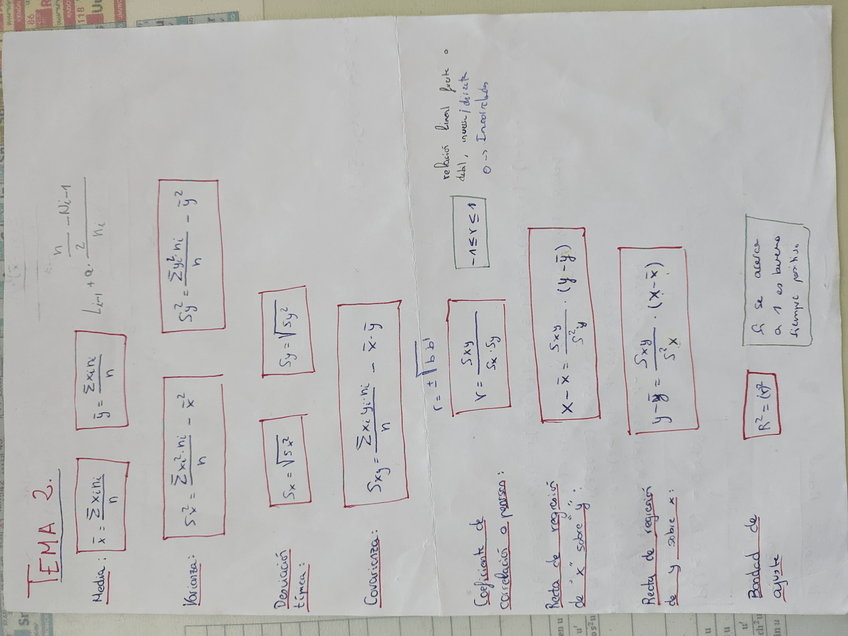 TEMA 2.
Media: x̄ = Σxini / n    ȳ = Σxini / n    Li-1 + a · (n/2 − Ni-1) / ni
Varianza: Sx² = Σxi²·ni / n − x̄²    Sy² = Σyi²ni / n − ȳ²
Desviación
típica: Sx = √Sx²    Sy = √Sy²
Covarianza: Sxy = Σxi yi·ni / n − x̄·ȳ
r = ± √b·b'
Coeficiente de
correlación o pearson: r = Sxy / Sx·Sy    -1 ≤ r ≤ 1
relación lineal fuerte o
debil, inversa/directa
0 → Incorrelada
Recta de regresión
de "x" sobre "y": x − x̄ = Sxy / S²y · (y − ȳ)
Recta de regresión
de y sobre x: y − ȳ = Sxy / S²x · (x − x̄)
Bondad de
ajuste R² = (r)²
Si se acerca
a 1 es bueno
siempre positivo